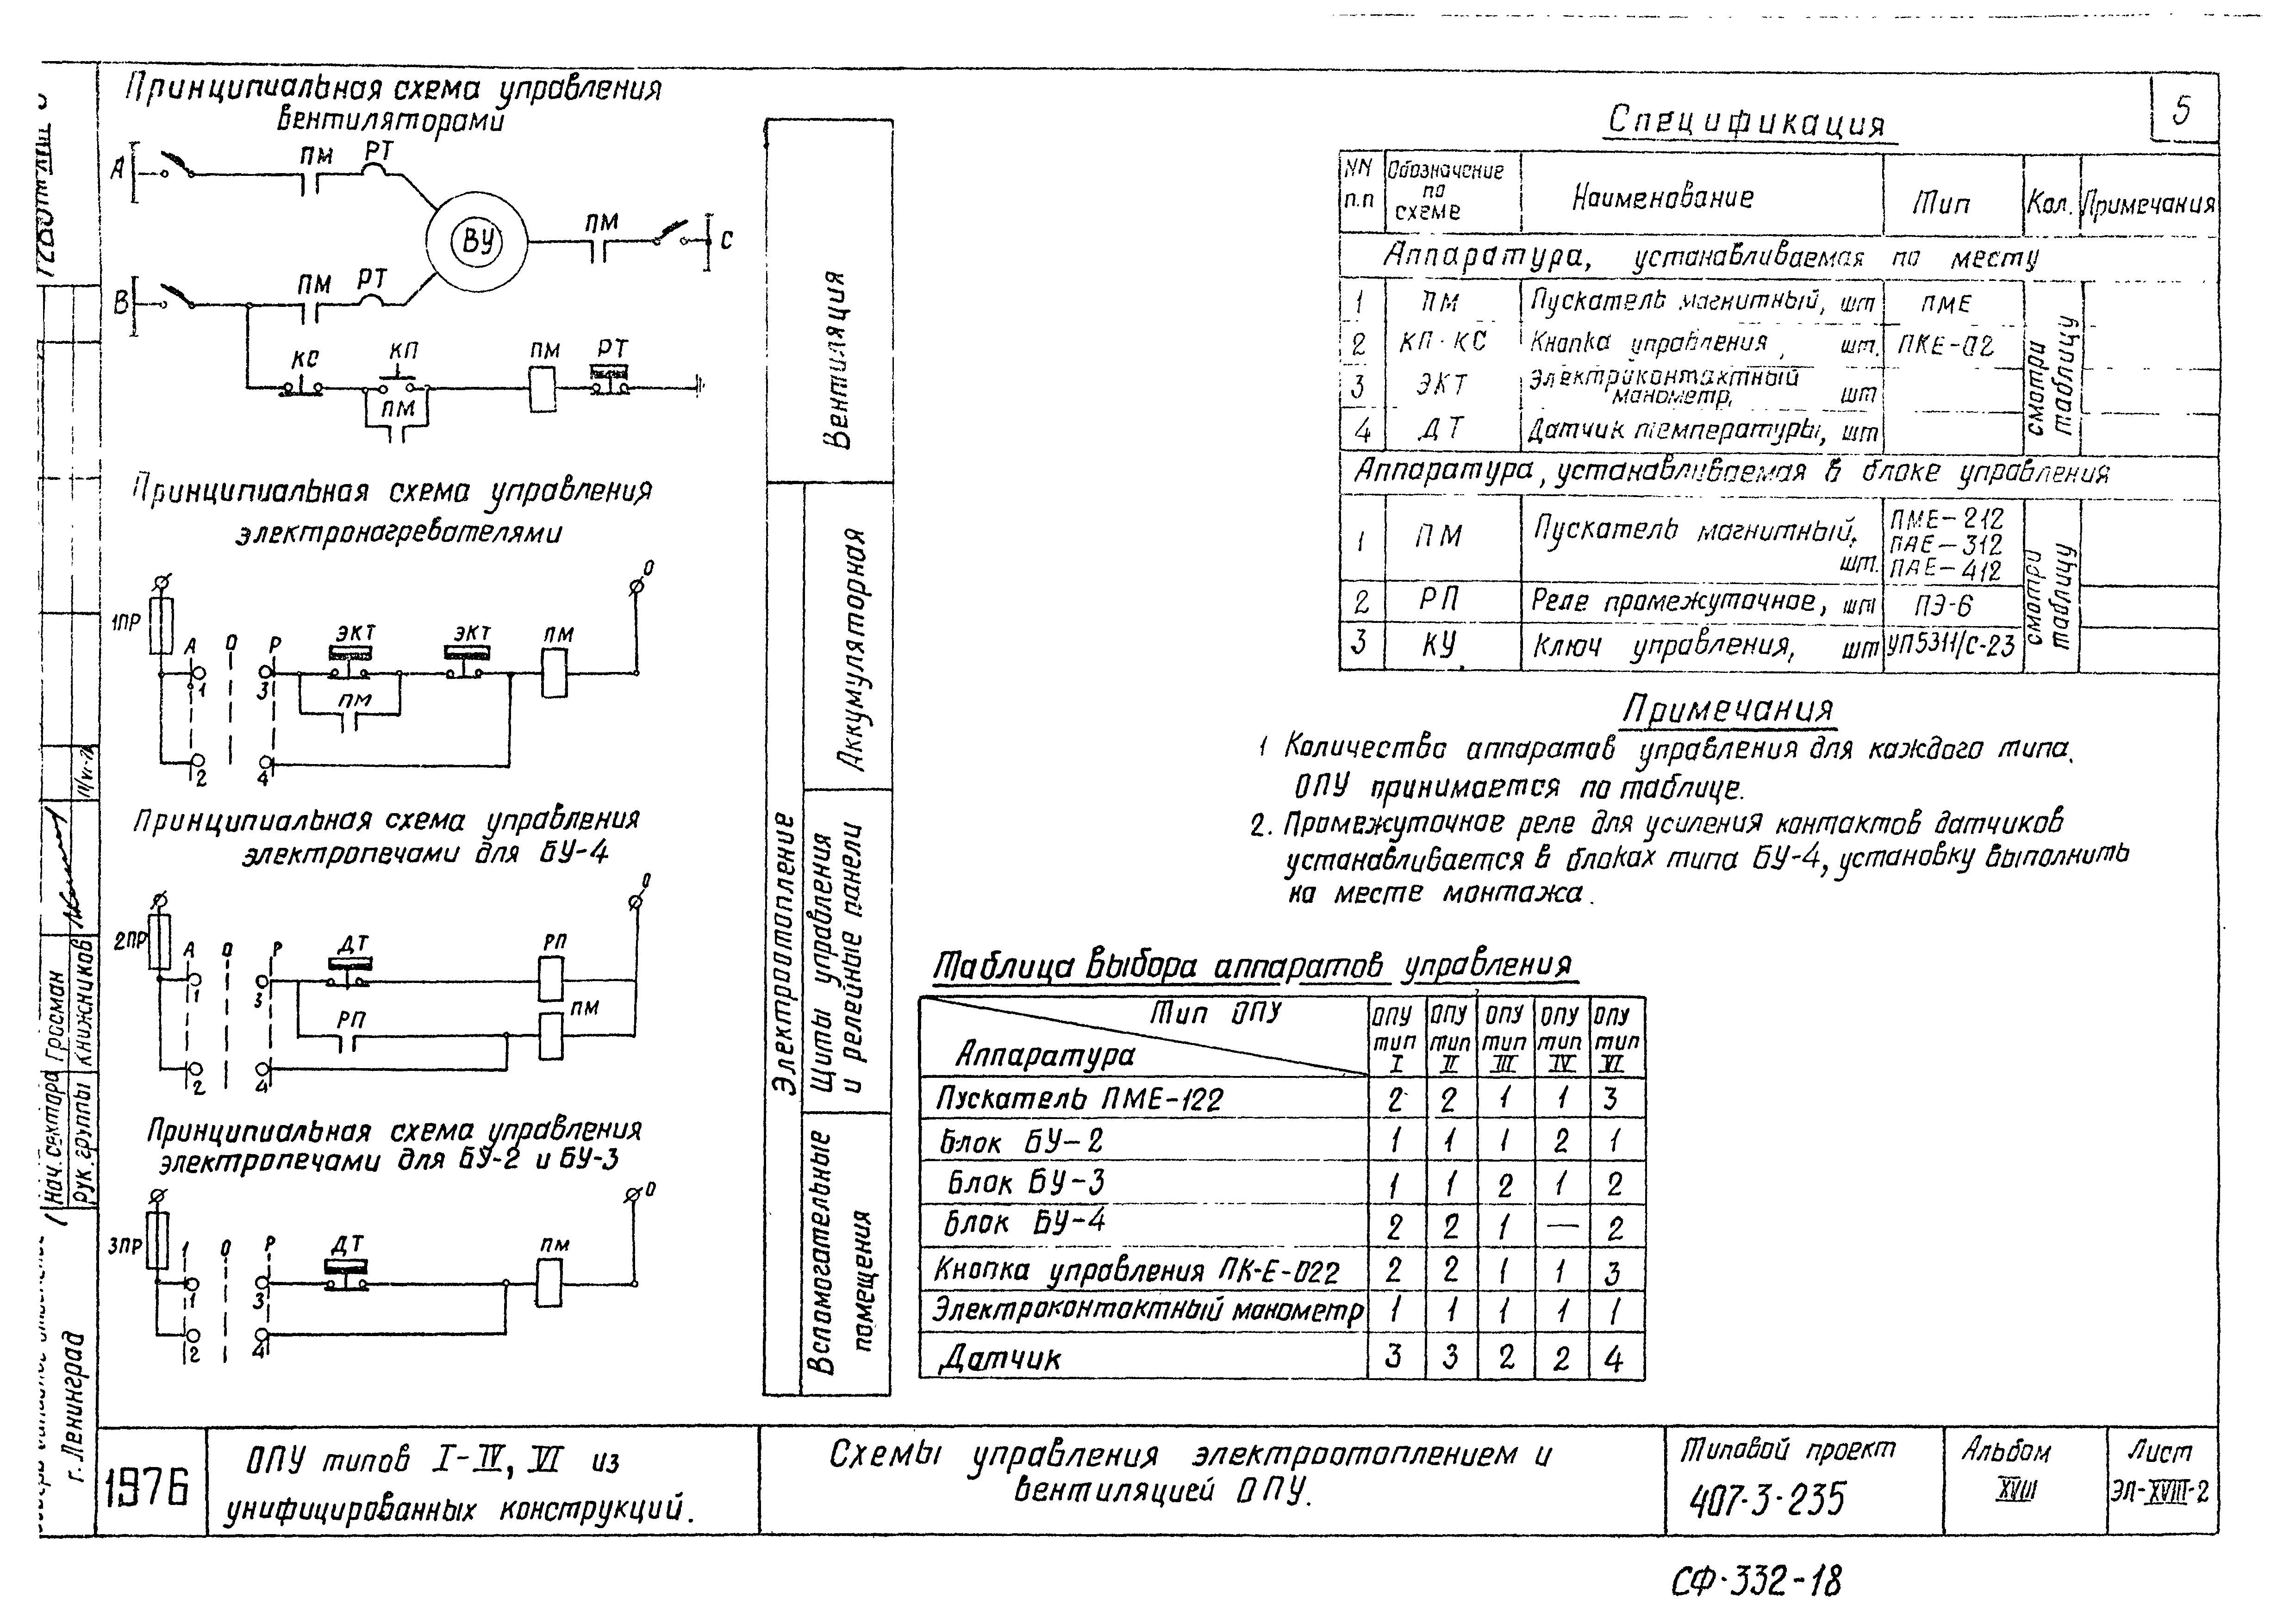 5
Принципиальная схема управления
вентиляторами
А
ПМ
РТ
ВУ
ПМ
С
В
ПМ
РТ
КС
КП
ПМ
РТ
ПМ
Принципиальная схема управления
электронагревателями
1ПР
А
О
Р
ЭКТ
ЭКТ
ПМ
О
1
3
ПМ
2
4
Принципиальная схема управления
электропечами для БУ-4
2ПР
А
О
Р
ДТ
РП
О
1
3
РП
ПМ
2
4
Принципиальная схема управления
электропечами для БУ-2 и БУ-3
3ПР
1
О
Р
ДТ
ПМ
О
1
3
2
4
Вентиляция
Электроотопление
Аккумуляторная
Щиты управления
и релейные панели
Вспомогательные
помещения
Спецификация
NN п.п Обозначение по схеме Наименование Тип Кол. Примечания
Аппаратура, устанавливаемая по месту
1 ПМ Пускатель магнитный, шт ПМЕ
2 КП-КС Кнопка управления, шт. ПКЕ-02
3 ЭКТ Электроконтактный манометр, шт
4 ДТ Датчик температуры, шт
смотри таблицу
Аппаратура, устанавливаемая в блоке управления
1 ПМ Пускатель магнитный, шт. ПМЕ-212
ПАЕ-312
ПАЕ-412
2 РП Реле промежуточное, шт ПЭ-6
3 КУ Ключ управления, шт УП5311/С-23
смотри таблицу
Примечания
1 Количество аппаратов управления для каждого типа.
ОПУ принимается по таблице.
2. Промежуточное реле для усиления контактов датчиков
устанавливается в блоках типа БУ-4, установку выполнить
на месте монтажа.
Таблица выбора аппаратов управления
Тип ОПУ
Аппаратура
ОПУ тип I ОПУ тип II ОПУ тип III ОПУ тип IV ОПУ тип VI
Пускатель ПМЕ-122 2 2 1 1 3
Блок БУ-2 1 1 1 2 1
Блок БУ-3 1 1 2 1 2
Блок БУ-4 2 2 1 — 2
Кнопка управления ПК-Е-022 2 2 1 1 3
Электроконтактный манометр 1 1 1 1 1
Датчик 3 3 2 2 4
Нач. сектора Гросман
Рук. группы Книжников
г. Ленинград
1976
ОПУ типов I-IV, VI из
унифицированных конструкций.
Схемы управления электроотоплением и
вентиляцией ОПУ.
Типовой проект
407-3-235
Альбом
XVIII
Лист
ЭЛ-XVIII-2
СФ-332-18